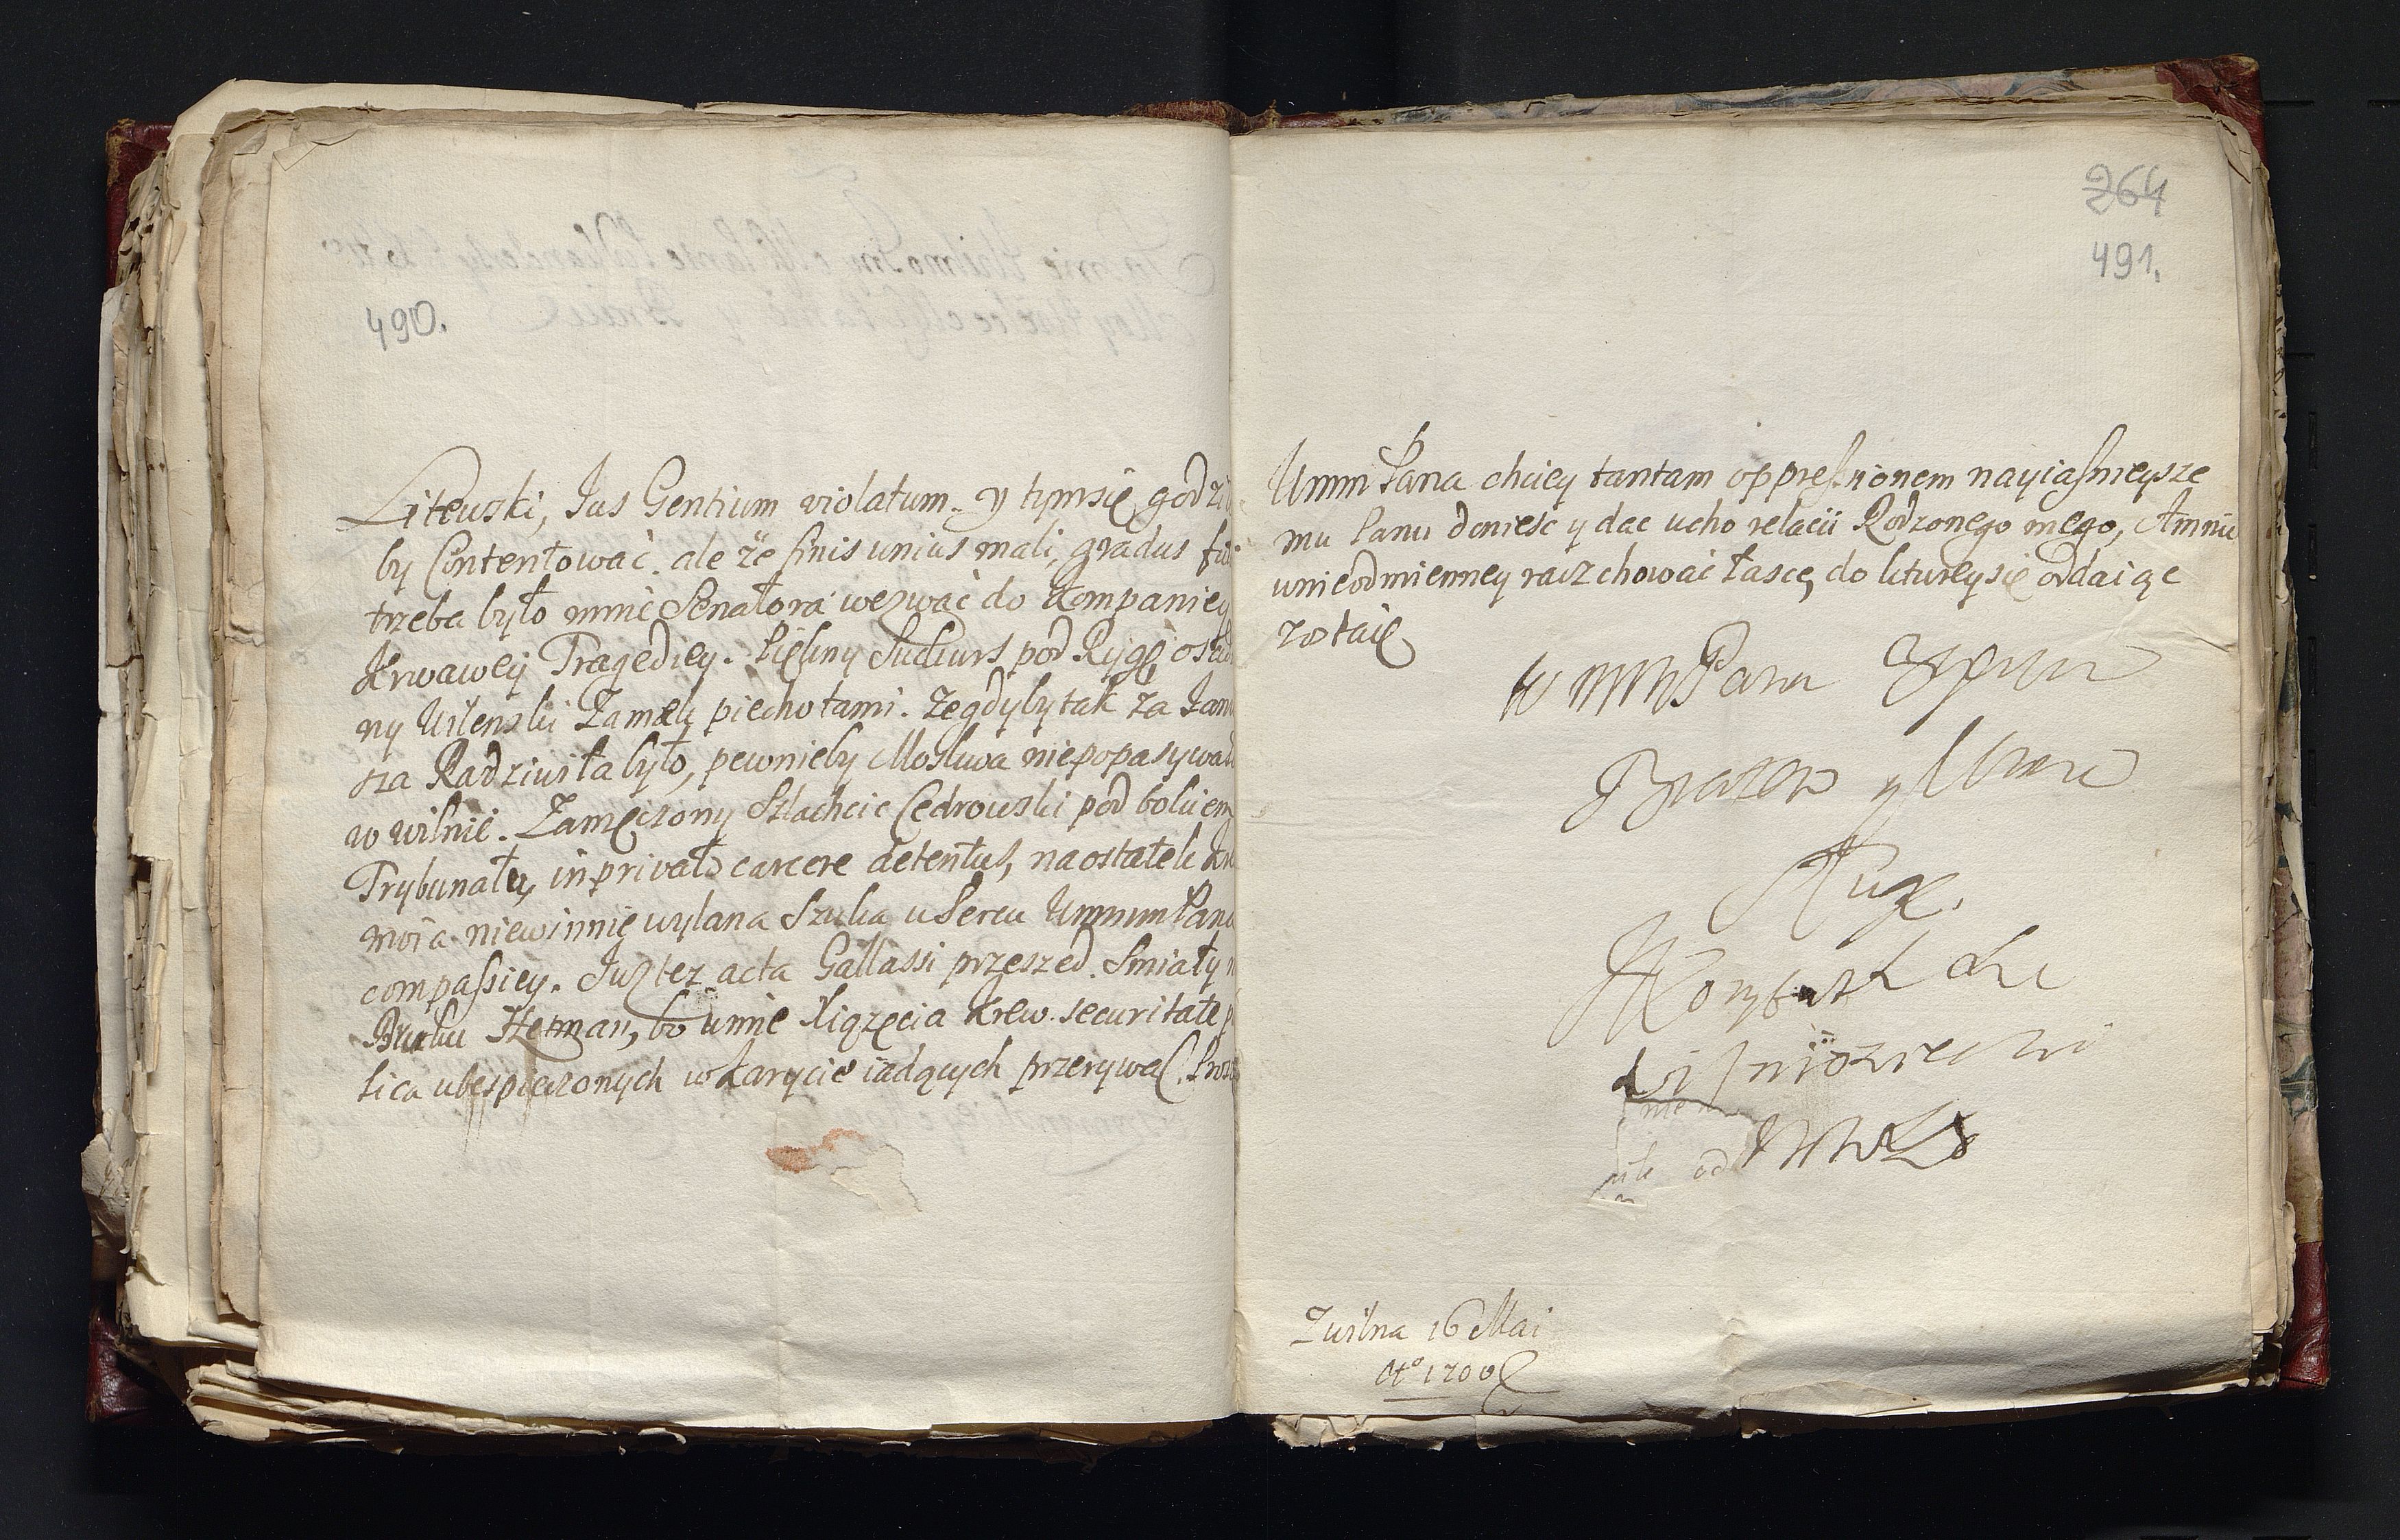 490.
Litewski, Ius Gentium violatum. y tymsię godzi
by Contentować. ale że finis unius mali, gradus
trzeba było mnie Senatora wezwać do Kompaniey
Krwawey Tragediey. Piękny Sukurs pod Rygę
ny Wilenski Zamek piechotami. że gdyby tak za Ianu
sza Radziwiła było, pewnieby Moskwa niepopasywała
w wilnie. Zamęczony Szlachcic Cedrowski pod bokiem
Trybunału, in privato carcere detentus, naostatek
moia niewinnie wylana Szuka u Serca Wmmm Pana
compassiey. Iuż też acta Gallassi przeszed. Smiały
Bucku Hetman, bo umie Xiązęcia Krew. securitate
lica ubespieczonych w Karycie iadących przerywać.
264
491.
Wmm Pana chciey tantam oppressionem nayiasnieysze
mu Panu doniesc y dac ucho relacii Rodzonego mego, A mnie
w nieodmienney racz chować łasce, do kturey się oddaiąc
zostaię
W mm Pana
Bratem y
Sługą.
Korybut
Wiśniowiecki
od
Zwilna 16 Mai
Ao 1700